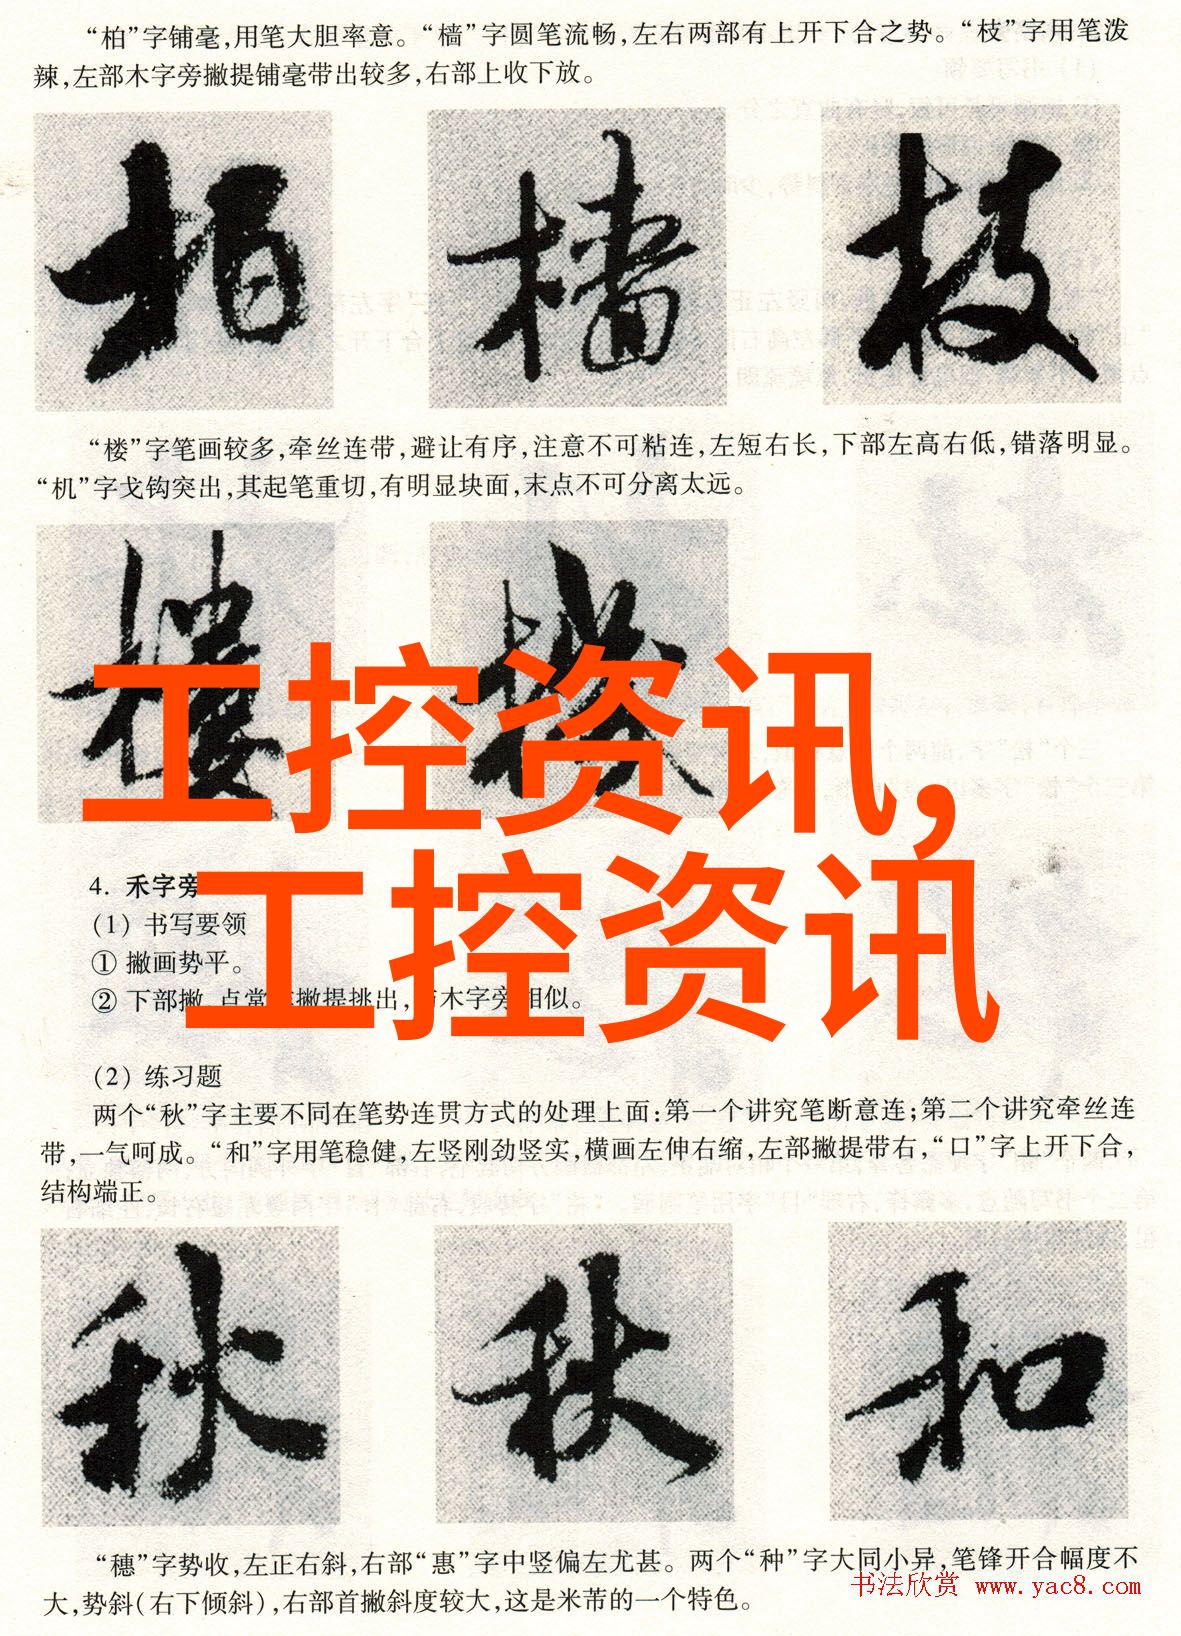 “柏”字铺毫,用笔大胆率意。“樯”字圆笔流畅,左右两部有上开下合之势。“枝”字用笔泼
辣,左部木字旁撇提铺毫带出较多,右部上收下放。
柏 樯 枝
“楼”字笔画较多,牵丝连带,避让有序,注意不可粘连,左短右长,下部左高右低,错落明显。
“机”字戈钩突出,其起笔重切,有明显块面,末点不可分离太远。
樓 機
工控资讯,
工控资讯
4. 禾字旁
(1) 书写要领
① 撇画势平。
② 下部撇、点常 撇提挑出, 木字旁相似。
(2) 练习题
两个“秋”字主要不同在笔势连贯方式的处理上面:第一个讲究笔断意连;第二个讲究牵丝连
带,一气呵成。“和”字用笔稳健,左竖刚劲竖实,横画左伸右缩,左部撇提带右,“口”字上开下合,
结构端正。
秋 秋 和
“穗”字势收,左正右斜,右部“惠”字中竖偏左尤甚。两个“种”字大同小异,笔锋开合幅度不
大,势斜(右下倾斜),右部首撇斜度较大,这是米芾的一个特色。
书法欣赏 www.yac8.com